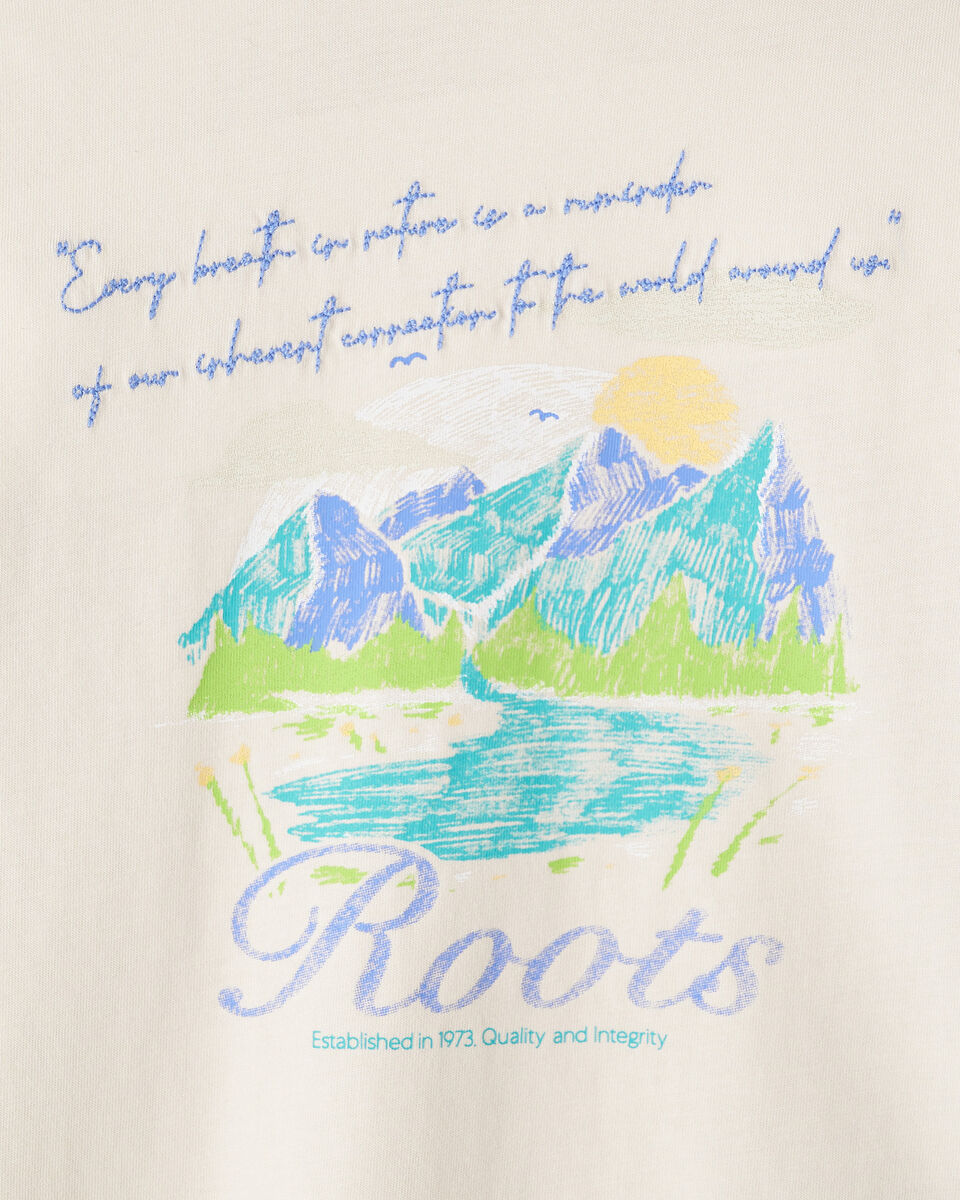 "Every breath in nature is a reminder
of our inherent connection to the world around us."
Roots
Established in 1973. Quality and Integrity